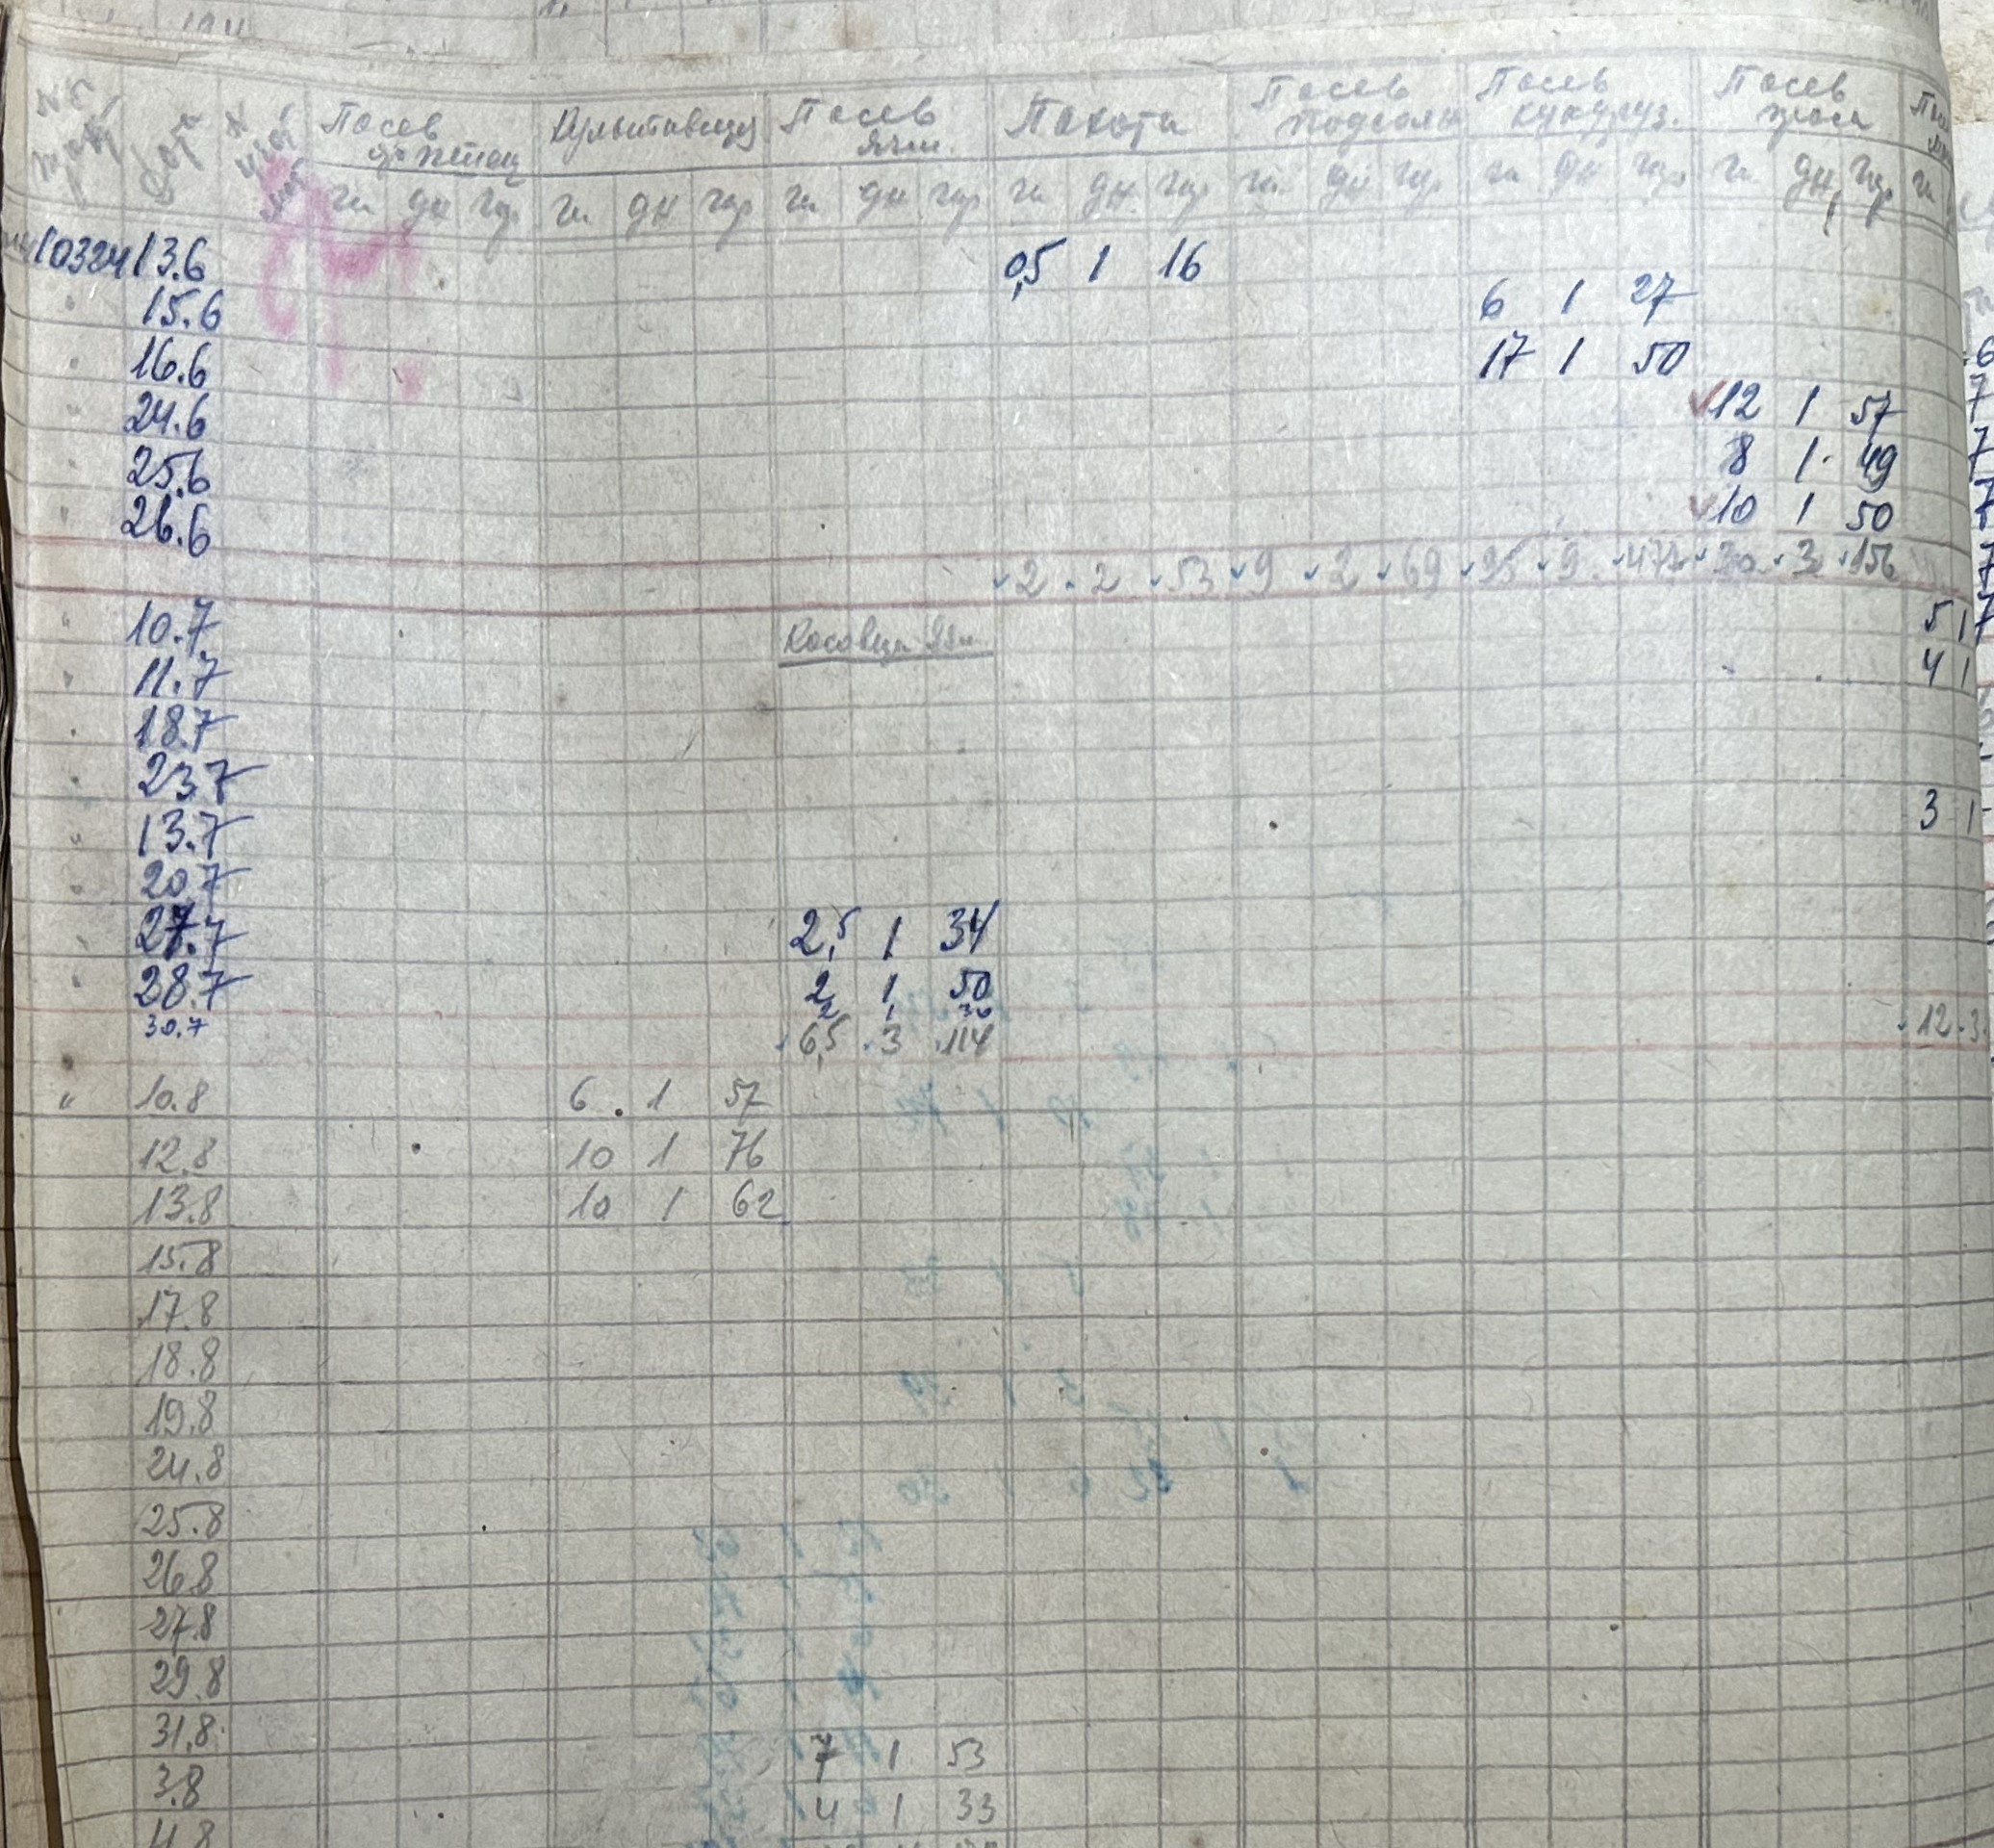 Посев Культивация Посев Пахота Посев Посев Посев
ячм. подсолн кукуруз. проса
га дн га дн га дн га дн га дн га дн га дн га
10324 13.6 0,5 1 16
" 15.6 6 1 27
" 16.6 17 1 50
" 24.6 12 1 57
" 25.6 8 1 49
" 26.6 10 1 50
2 2 53 9 2 69 95 9 30 3 156
" 10.7 Косовица ячм. 5 1
" 11.7 4 1
" 18.7
" 23.7 3 1
" 13.7
" 20.7
" 27.7 2,5 1 34
" 28.7 2 1 50
30.7 2 1 30
6,5 3 114 12 3
" 10.8 6 1 57
12.8 10 1 76
13.8 10 1 62
15.8
17.8
18.8
19.8
24.8
25.8
26.8
27.8
29.8
31.8 7 1 53
3.8 4 1 33
4.8